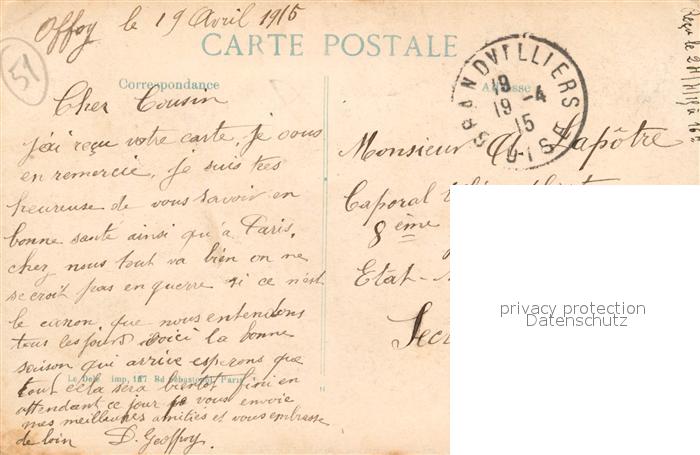 Offoy le 19 Avril 1915
51
CARTE POSTALE
Correspondance
Adresse
GRANDVILLIERS
19
19 -4
15
OISE
Reçu le
Cher Cousin
j'ai reçu votre carte, je vous
en remercie, je suis très
heureuse de vous savoir en
bonne santé ainsi qu'à Paris,
chez nous tout va bien on ne
se croit pas en guerre si ce n'est
le canon que nous entendons
tous les jours voici la bonne
saison qui arrive esperons que
tout cela sera bientôt fini en
attendant ce jour je vous envoie
mes meilleures amitiés et vous embrasse
de loin D. Geoffroy
Le Dele imp, 127 Bd Sébastopol, Paris
Monsieur Lapôtre
Caporal
8ème
Etat-
Secr
privacy protection
Datenschutz